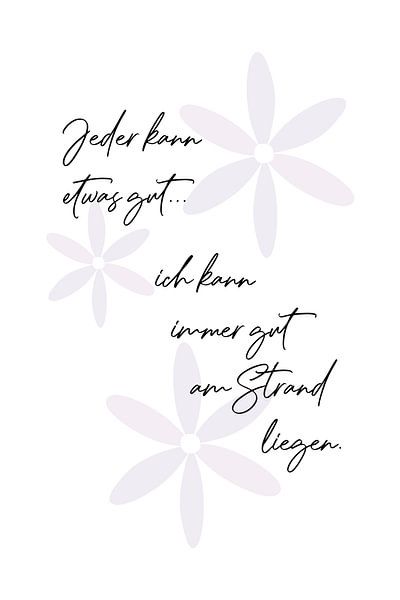 Jeder kann
etwas gut...
ich kann
immer gut
am Strand
liegen.